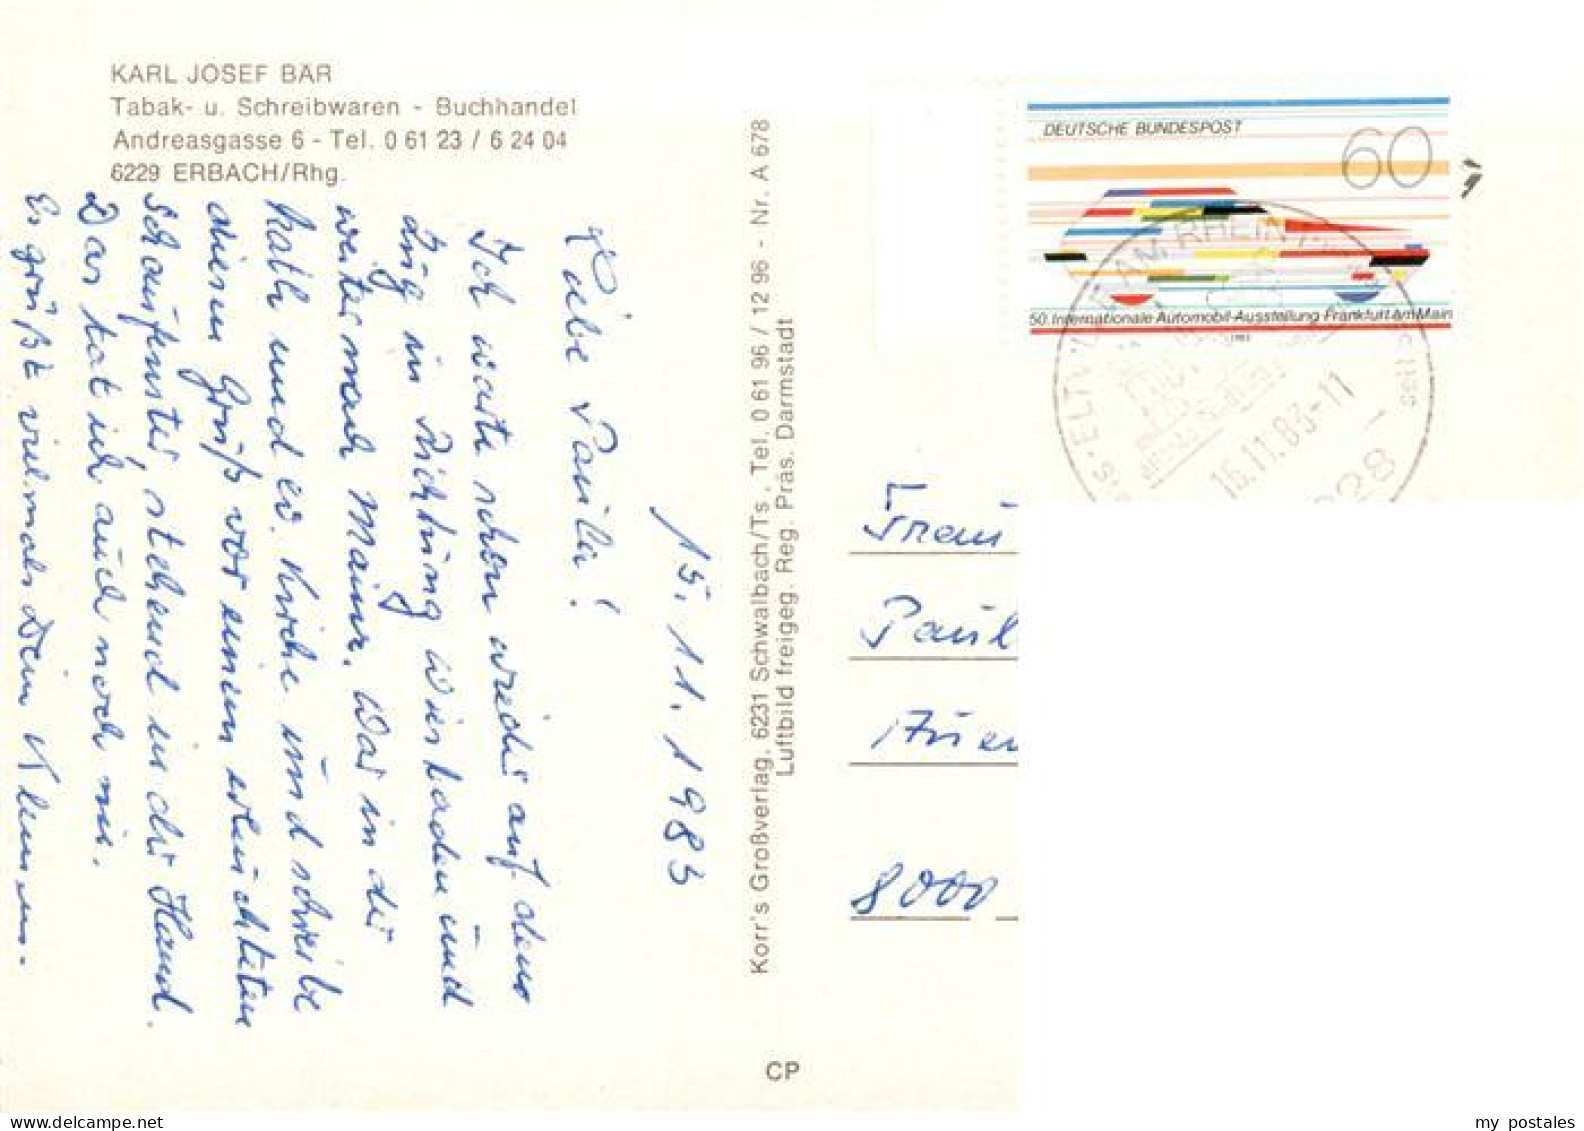 KARL JOSEF BÄR
Tabak- u. Schreibwaren - Buchhandel
Andreasgasse 6 - Tel. 0 61 23 / 6 24 04
6229 ERBACH/Rhg.
15.11.1983
Liebe Paula!
Ich warte schon wieder auf dem
Zug in Richtung Wiesbaden und
weiter nach Mainz. War in der
kath und ev. Kirche und schreibe
diesen Gruß vor einem erleuchteten
Schaufenster, stehend in der Hand.
Das hat ich auch noch nie.
Es grüßt vielmals Dein Klemens.
Korr's Großverlag, 6231 Schwalbach/Ts., Tel. 0 61 96 / 12 96 - Nr. A 678
Luftbild freigeg. Reg. Präs. Darmstadt
CP
DEUTSCHE BUNDESPOST
60
50. Internationale Automobil-Ausstellung Frankfurt am Main
1983
ELTVILLE AM RHEIN
15.11.83-11
228
Frau
Paul
8000
my postales